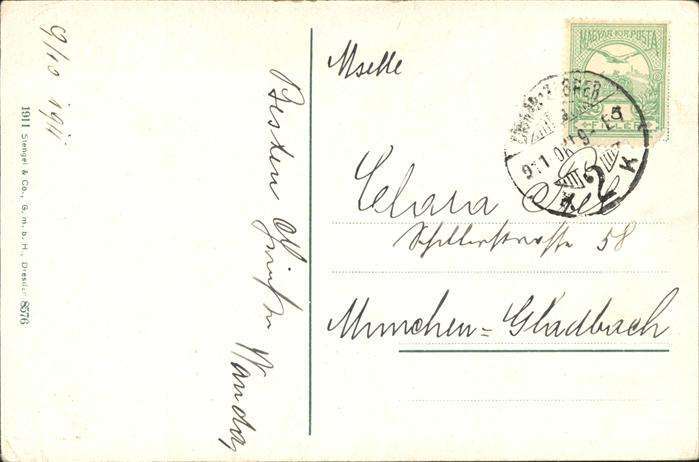 9/10 1911
Besten
Wanda
1911 Stengel & Co., G. m. b. H., Dresden 8576
Mselle
MAGYAR KIR. POSTA
5
FILLÉR
911 OKT 9
Clara
Schillerstrasse 58
München=Gladbach